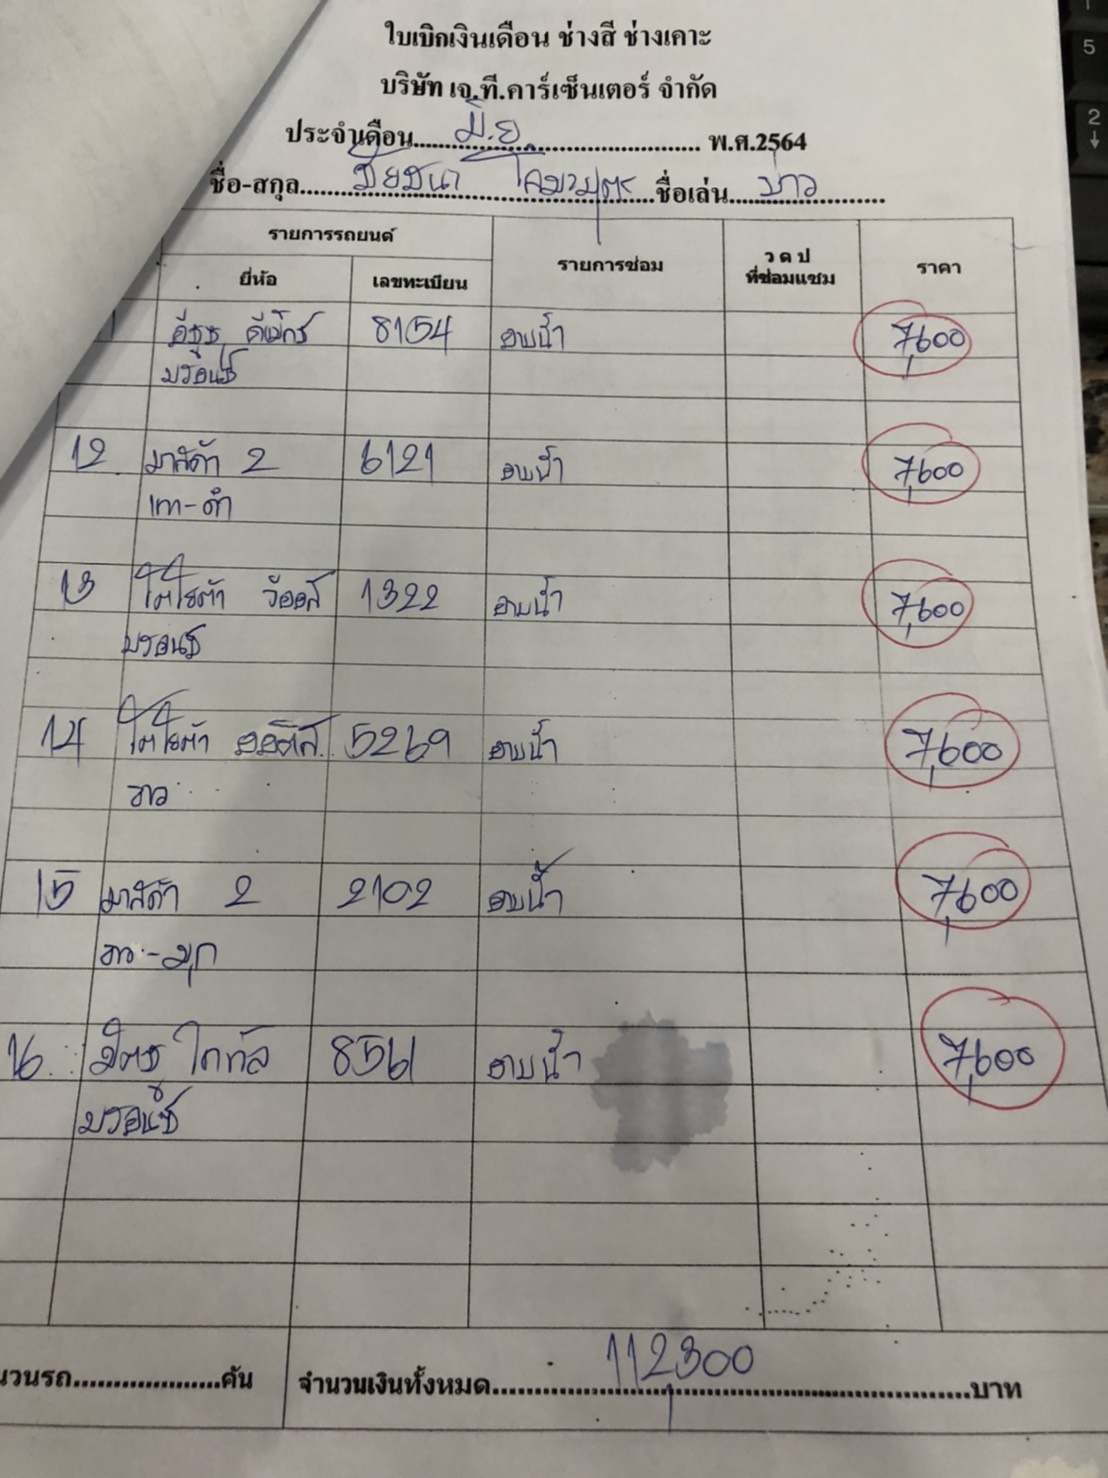 ใบเบิกเงินเดือน ช่างสี ช่างเคาะ
บริษัท เจ.ที.คาร์เซ็นเตอร์ จำกัด
ประจำเดือน.....มิ.ย..... พ.ศ.2564
ชื่อ-สกุล.....ชัยชนา โคมามุตร.....ชื่อเล่น.....บ่าว.....
รายการรถยนต์ รายการซ่อม ว ด ป ราคา
ยี่ห้อ เลขทะเบียน ที่ซ่อมแซม
อีซูซุ ดีแม็กซ์ 8154 อาบน้ำ 7,600
บรอนซ์
12 มาสด้า 2 6121 อาบน้ำ 7,600
เทา-ดำ
13 โตโยต้า วีออส 1322 อาบน้ำ 7,600
บรอนซ์
14 โตโยต้า ออติส 5269 อาบน้ำ 7,600
ขาว
15 มาสด้า 2 2102 อาบน้ำ 7,600
ขาว-มุก
16 มิตซู ไททัล 8561 อาบน้ำ 7,600
บรอนซ์
นวนรถ.....คัน จำนวนเงินทั้งหมด.....112,300.....บาท
5
2